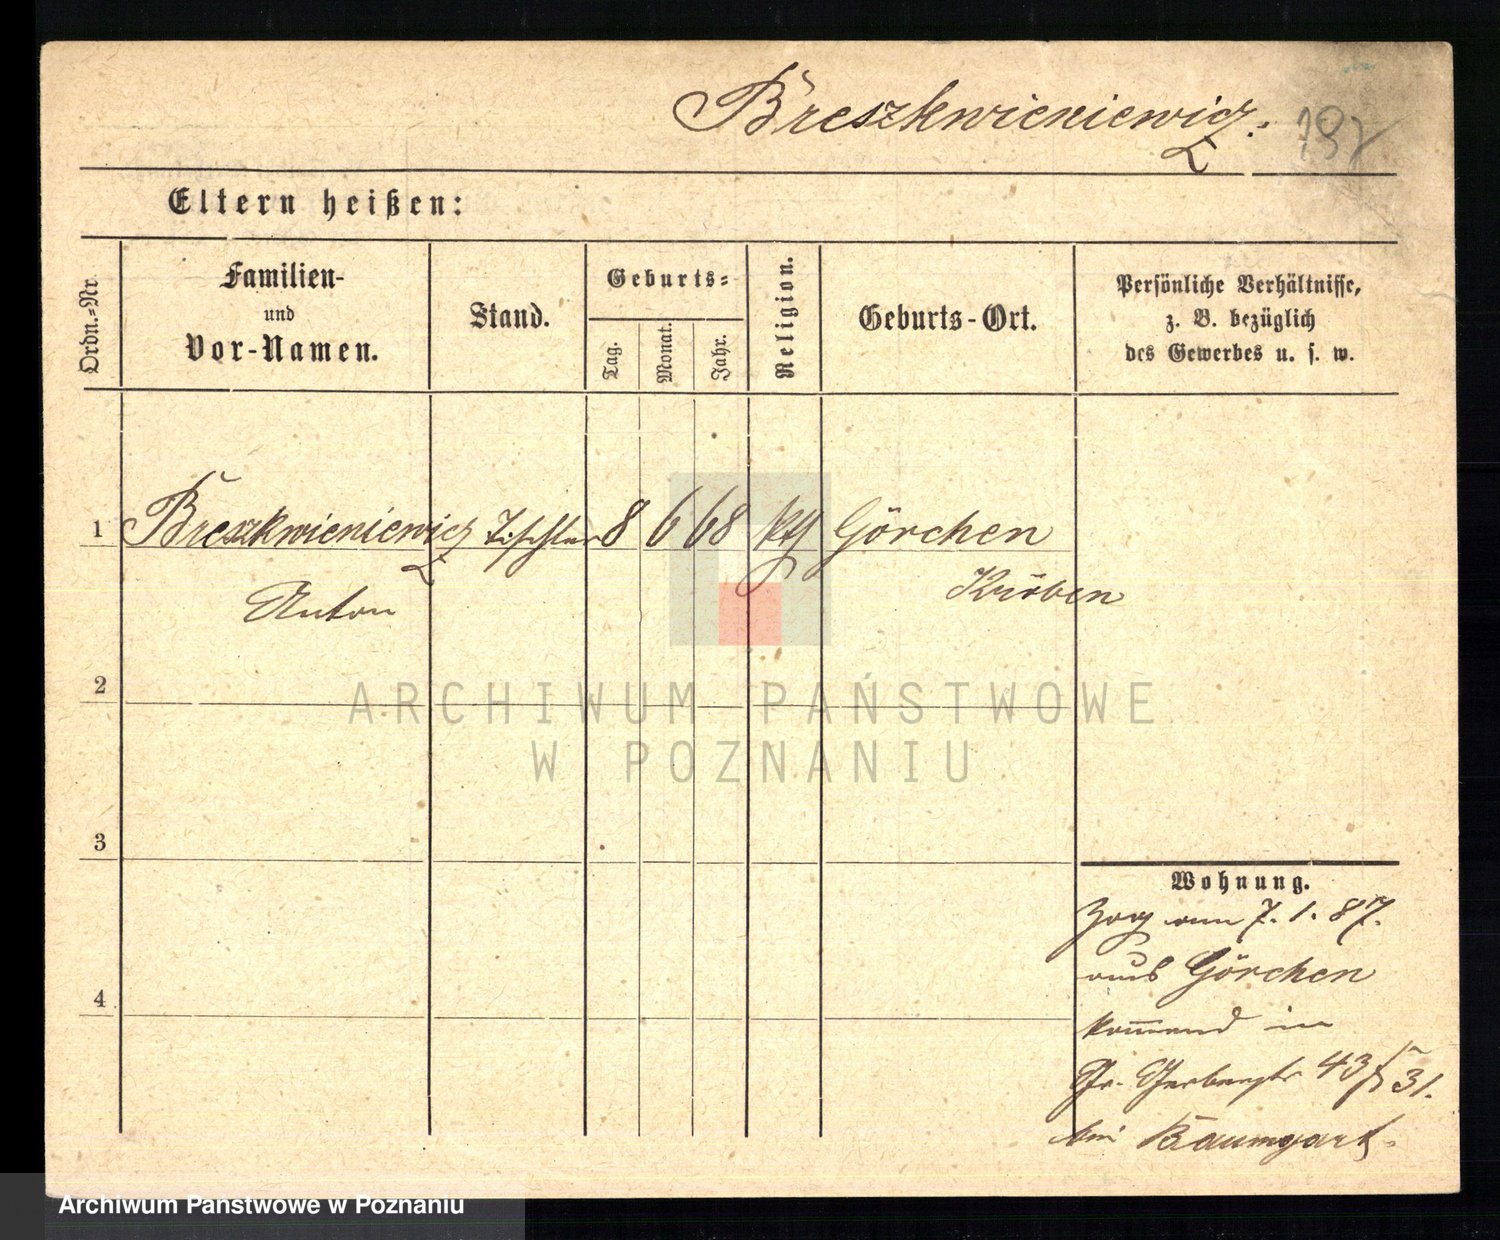 Breszkwieniewicz.
Eltern heißen:
Ordn.-Nr
Familien-
und
Vor-Namen.
Stand.
Geburts-
Tag.
Monat.
Jahr.
Religion.
Geburts-Ort.
Persönliche Verhältnisse,
z. B. bezüglich
des Gewerbes u. s. w.
1 Breszkwieniewicz Tischler 8 6 68 kth Görchen
Anton Kröben
2
ARCHIWUM PAŃSTWOWE
W POZNANIU
3
Wohnung.
Zog am 7. 1. 87.
aus Görchen
4
kommend in
Gr. Gerberstr 43/31.
bei Baumgart.
Archiwum Państwowe w Poznaniu